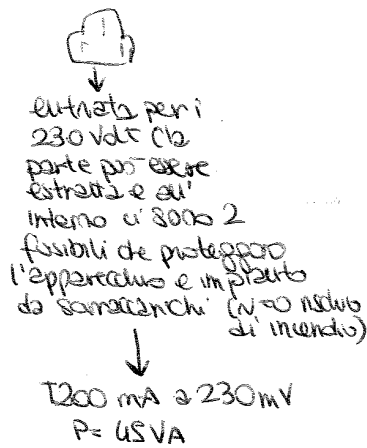 entrata per i
230 Volt (la
parte può essere
estratta e all'
interno ci sono 2
fusibili che proteggono
l'apparecchio e impianto
da sovraccarichi (N=0 rischio
di incendio)
T200 mA a 230mV
P= 45VA